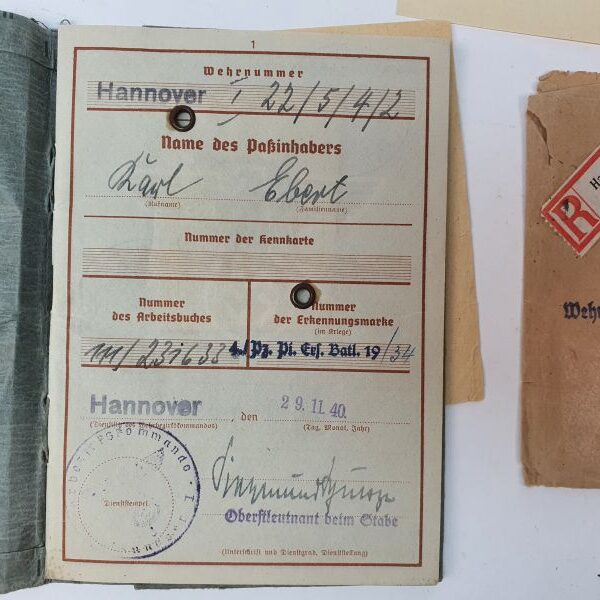 1
Wehrnummer
Hannover I 22/5/4/2
Name des Paßinhabers
Karl Ebert
(Rufname) (Familienname)
Nummer der Kennkarte
Nummer des Arbeitsbuches
Nummer der Erkennungsmarke
(im Kriege)
4./Pz. Pi. Ers. Batl. 19
Hannover, den 29.11.40.
(Tag, Monat, Jahr)
Dienststempel
Oberstleutnant beim Stabe
(Unterschrift und Dienstgrad, Dienststellung)
R
Ha
Wehr